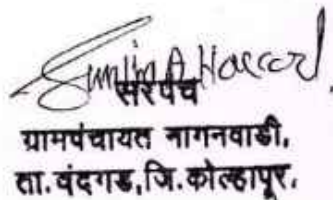 सरपंच
ग्रामपंचायत नागनवाडी,
ता.चंदगड,जि.कोल्हापूर.